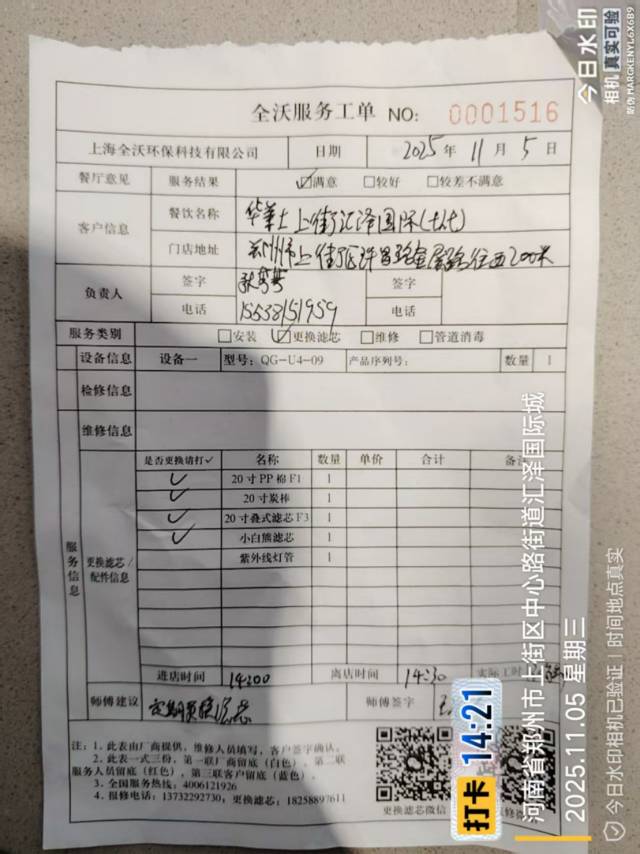 全沃服务工单 NO: 0001516
上海全沃环保科技有限公司 日期 2025 年 11 月 5 日
餐厅意见 服务结果 ☑满意 □较好 □较差不满意
客户信息 餐饮名称 华莱士上街汇泽国际(七代)
门店地址 郑州市上街区许昌路金屏路往西200米
负责人 签字 签字
电话 15538151959 电话
服务类别 □安装 ☑更换滤芯 □维修 □管道消毒
设备信息 设备一 型号: QG-U4-09 产品序列号: 数量 1
检修信息
维修信息
服务信息
更换滤芯/配件信息
是否更换请打✓ 名称 数量 单价 合计 备注
✓ 20寸PP棉F1 1
✓ 20寸炭棒 1
✓ 20寸叠式滤芯F3 1
✓ 小白熊滤芯 1
紫外线灯管 1
进店时间 14:00 离店时间 14:30 实际工时
师傅建议 定期更换滤芯 师傅签字
注: 1. 此表由厂商提供, 维修人员填写, 客户签字确认。
2. 此表一式三份, 第一联厂商留底(白色)。第二联
服务人员留底(红色)。第三联客户留底(蓝色)。
3. 全国服务热线: 4006121926
4. 报修电话: 13732292730, 更换滤芯: 18258897611
更换滤芯微信
打卡 14:21
河南省郑州市上街区中心路街道汇泽国际城
2025.11.05 星期三
今日水印
相机 真实可验
防伪 MARGKENYL6X6B9
今日水印相机已验证 | 时间地点真实